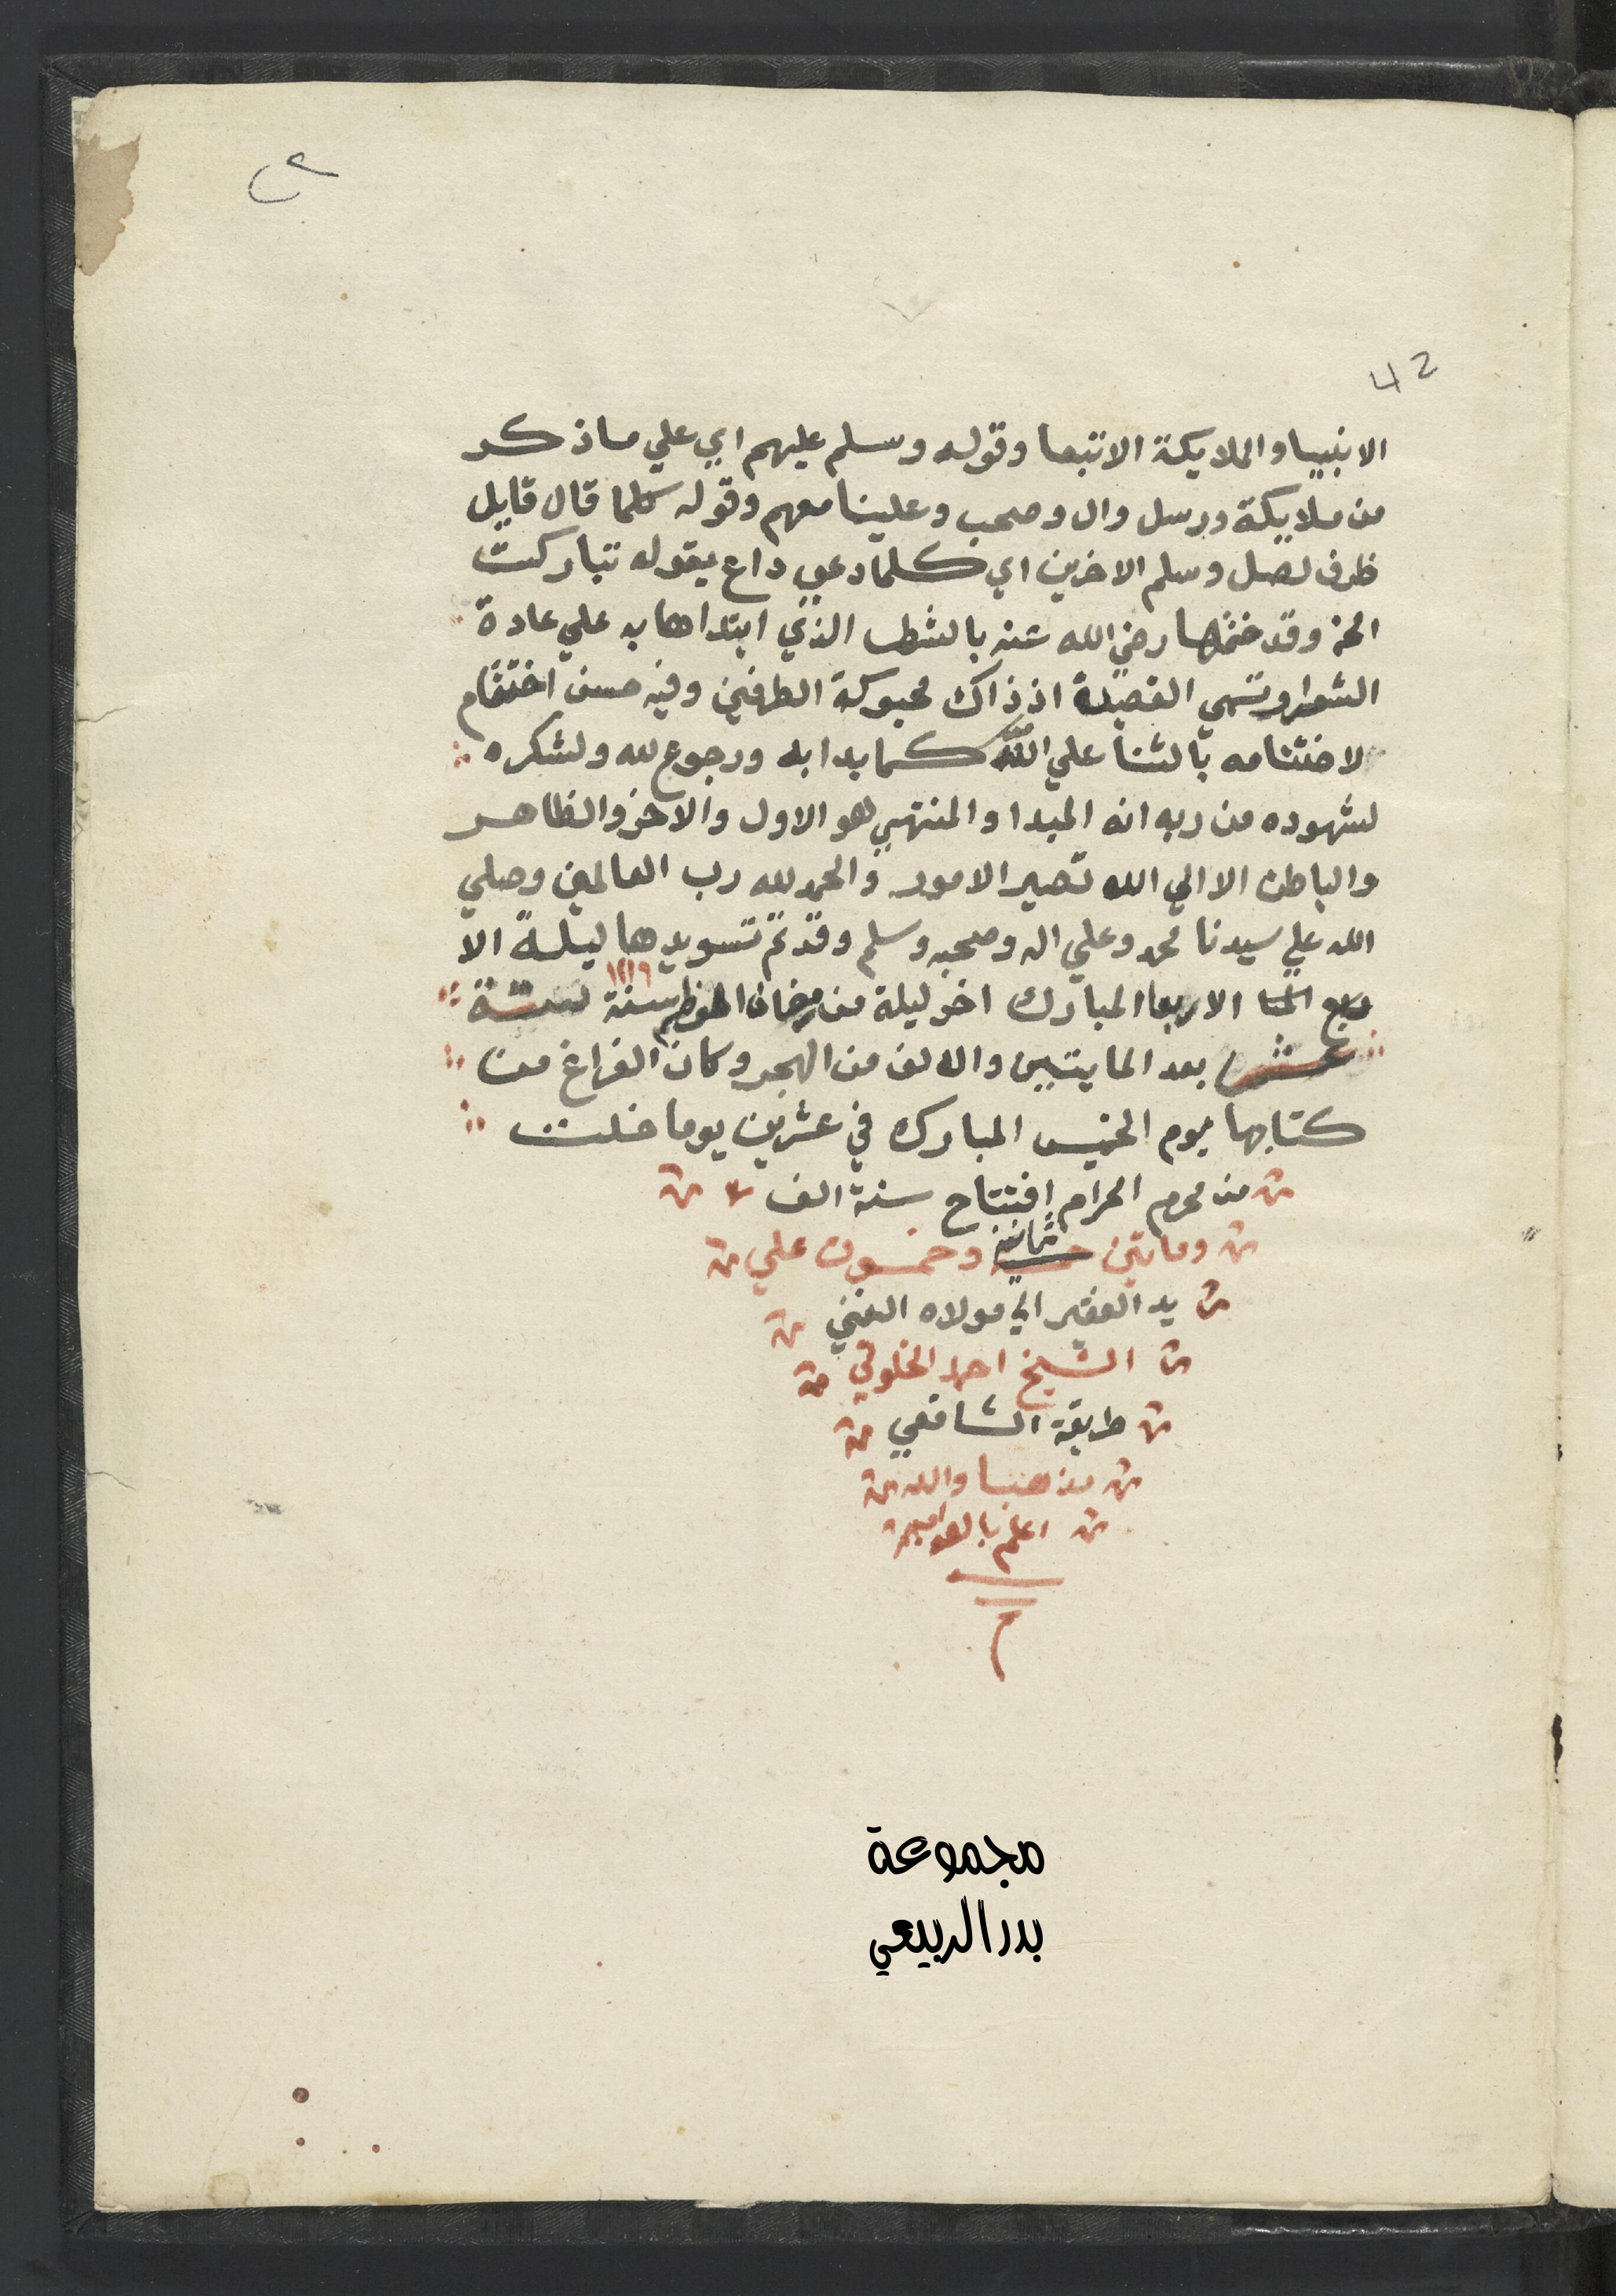 ٤٢
42
الانبيا والملايكة الاتبعا وقوله وسلم عليهم اي علي ماذكر
من ملايكة ورسل وال وصحب وعلينا معهم وقوله كلما قال قايل
ظرف لصل وسلم الاخرين اي كلما دعي داع بقوله تباركت
الخ وقد ختمها رضي الله عنه بالشطر الذي ابتداها به علي عادة
الشعرا وتسمي القصيدة اذ ذاك محبوكة الطرفين وفيه حسن اختتام
لاختتامه بالثنا علي الله كما بدا به ورجوع لله ولشكره
لشهوده من ربه انه المبدا والمنتهي هو الاول والاخر والظاهر
والباطن الا الي الله تصير الامور والحمد لله رب العالمين وصلي
الله علي سيدنا محمد وعلي اله وصحبه وسلم وقد تم تسويدها ليلة الا
الاربعا المبارك اخر ليلة من رمضان المعظم سنة ١٢١٩ ستة
عشر بعد المايتين والالف من الهجر وكان الفراغ من
كتابها يوم الخميس المبارك في عشرين يوما خلت
من محرم الحرام افتتاح سنة الف
ومايتين ثمانية وخمسون علي
يد الفقير الي مولاه الغني
الشيخ احمد الخلوتي
طريقة الشافعي
مذهبا والله
اعلم بالصواب
م
مجموعة
بدر الربيعي